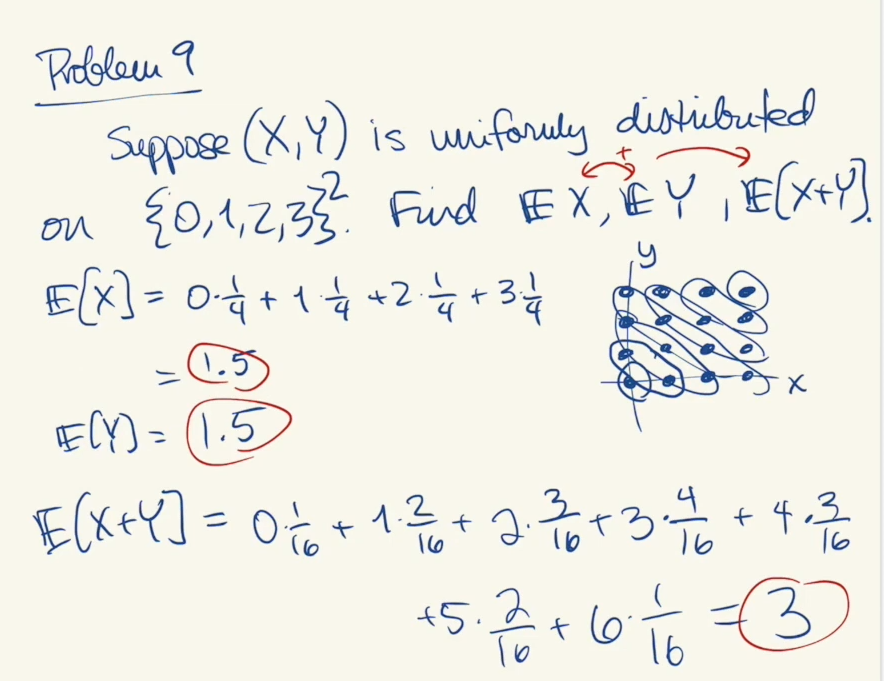 Problem 9
Suppose (X,Y) is uniformly distributed
on {0,1,2,3}². Find 𝔼X, 𝔼Y, 𝔼[X+Y].
+
y
x
𝔼[X] = 0·1/4 + 1·1/4 + 2·1/4 + 3·1/4
= 1.5
𝔼[Y] = 1.5
𝔼[X+Y] = 0·1/16 + 1·2/16 + 2·3/16 + 3·4/16 + 4·3/16
+5·2/16 + 6·1/16 = 3